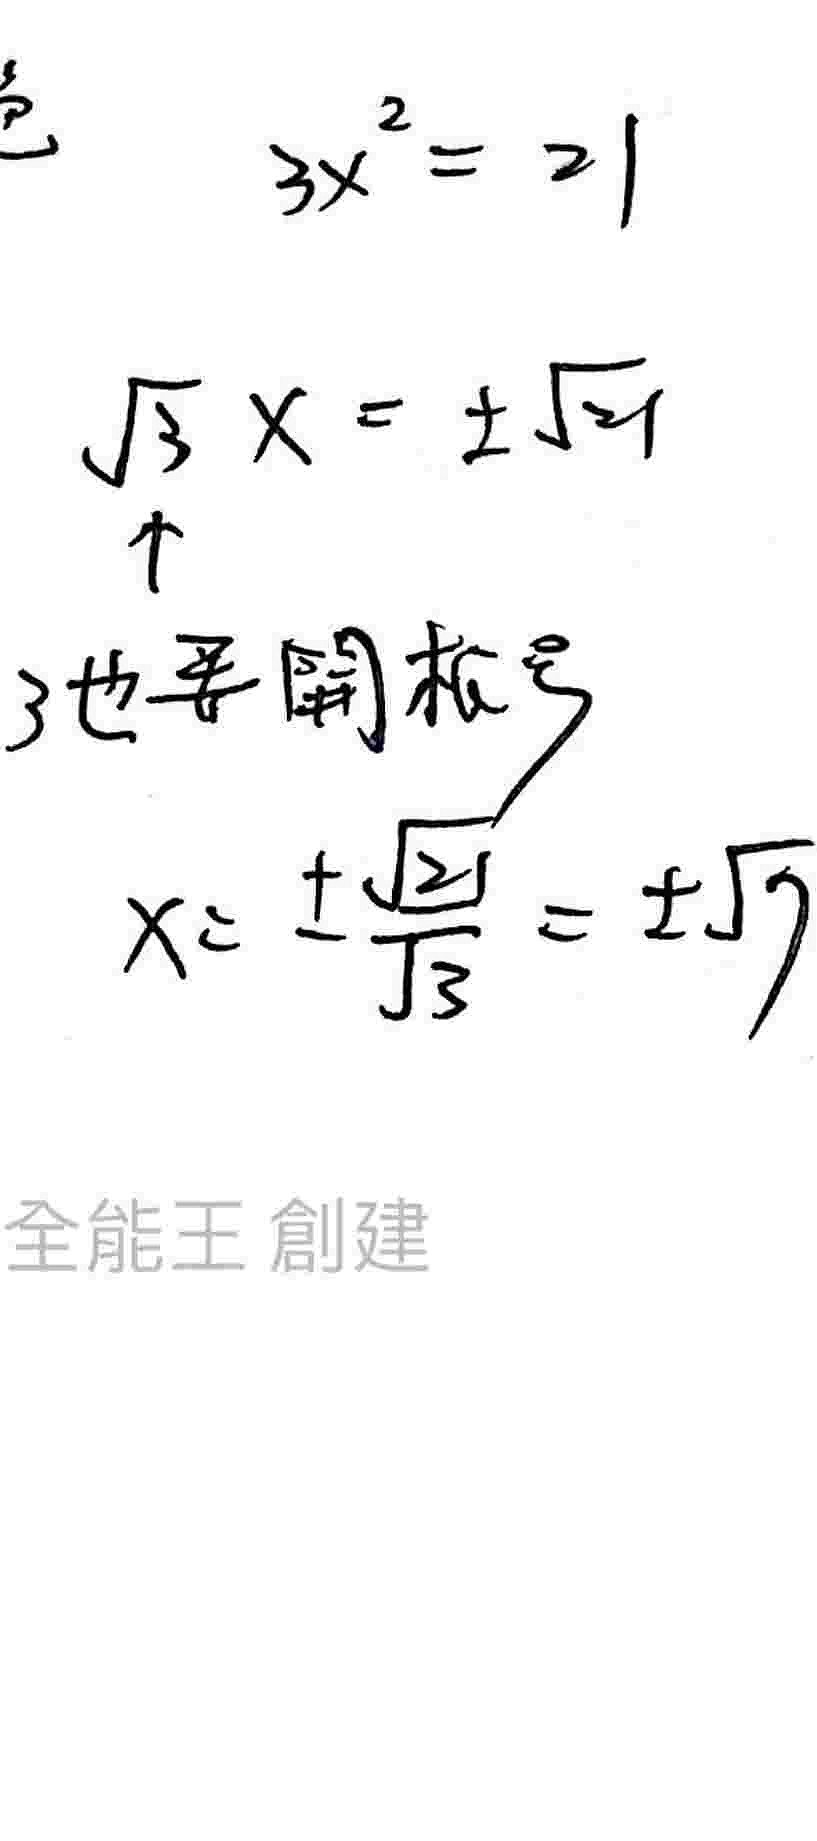 3x² = 21
√3 x = ±√21
↑
3也要開根号
x = ±√21/√3 = ±√7
全能王 創建